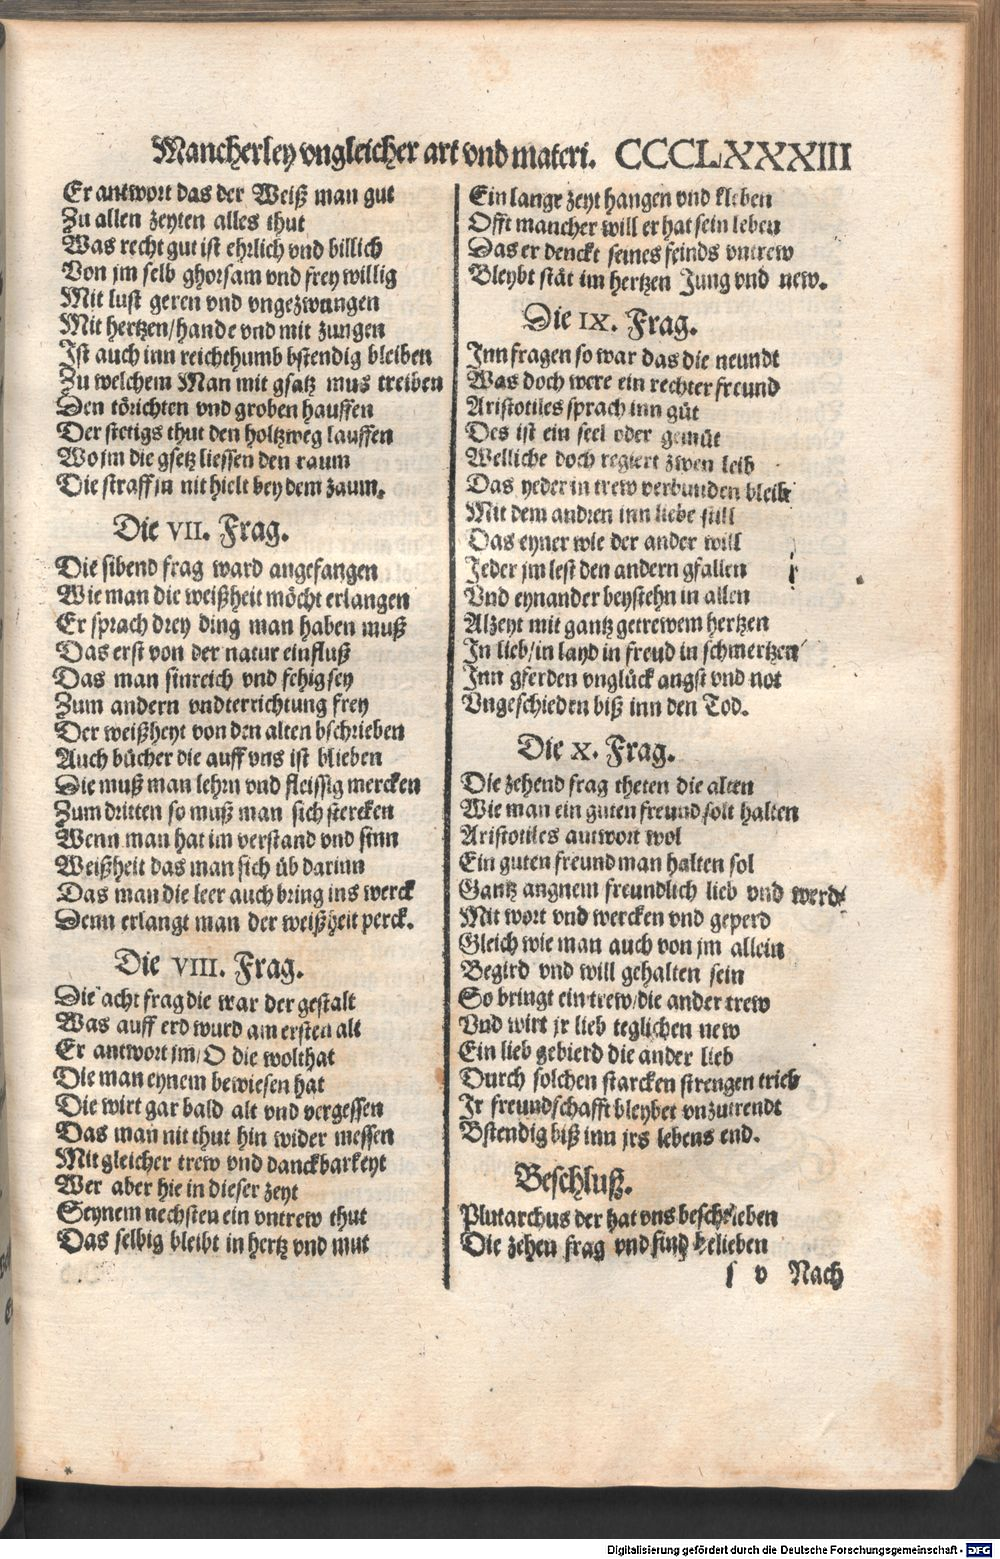 Mancherley vngleicher art vnd materi. CCCLXXXIII
Er antwort das der Weiß man gut
Zu allen zeyten alles thut
Was recht gut ist ehrlich vnd billich
Von jm selb ghorsam vnd frey willig
Mit lust geren vnd vngezwungen
Mit hertzen/hande vnd mit zungen
Ist auch inn reichthumb bstendig bleiben
Zu welchem Man mit gsatz mus treiben
Den törichten vnd groben hauffen
Der stetigs thut den holtzweg lauffen
Wo jm die gsetz liessen den raum
Die straff jn nit hielt bey dem zaum.
Die VII. Frag.
Die sibend frag ward angefangen
Wie man die weißheit möcht erlangen
Er sprach drey ding man haben muß
Das erst von der natur einfluß
Das man sinreich vnd fehig sey
Zum andern vndterrichtung frey
Der weißheyt von den alten bschrieben
Auch bücher die auff vns ist blieben
Die muß man lehrn vnd fleissig mercken
Zum dritten so muß man sich stercken
Wenn man hat im verstand vnd sinn
Weißheit das man sich üb darinn
Das man die leer auch bring ins werck
Denn erlangt man der weißheit perck.
Die VIII. Frag.
Die acht frag die war der gestalt
Was auff erd wurd am ersten alt
Er antwort jm/O die wolthat
Die man eynem bewiesen hat
Die wirt gar bald alt vnd vergessen
Das man nit thut hin wider messen
Mit gleicher trew vnd danckbarkeyt
Wer aber hie in dieser zeyt
Seynem nechsten ein vntrew thut
Das selbig bleibt in hertz vnd mut
Ein lange zeyt hangen vnd kleben
Offt mancher will er hat sein leben
Das er denckt seines feinds vntrew
Bleybt stät im hertzen Jung vnd new.
Die IX. Frag.
Inn fragen so war das die neundt
Was doch were ein rechter freund
Aristotiles sprach inn güt
Des ist ein seel oder gemüt
Welliche doch regiert zwen leib
Das yeder in trew verbunden bleib
Mit dem andren inn liebe still
Das eyner wie der ander will
Jeder jm lest den andern gfallen
Vnd eynander beystehn in allen
Alzeyt mit gantz getrewem hertzen
In lieb/in layd in freud in schmertzen
Inn gferden vnglück angst vnd not
Vngeschieden biß inn den Tod.
Die X. Frag.
Die zehend frag theten die alten
Wie man ein guten freund solt halten
Aristotiles antwort wol
Ein guten freund man halten sol
Gantz angnem freundlich lieb vnd werd
Mit wort vnd wercken vnd geperd
Gleich wie man auch von jm allein
Begird vnd will gehalten sein
So bringt ein trew/die ander trew
Vnd wirt jr lieb teglichen new
Ein lieb gebierd die ander lieb
Durch solchen starcken strengen trieb
Ir freundschafft bleybet vnzutrendt
Bstendig biß inn jrs lebens end.
Beschluß.
Plutarchus der hat vns beschrieben
Die zehen frag vnd sind belieben
s v Nach
Digitalisierung gefördert durch die Deutsche Forschungsgemeinschaft - DFG